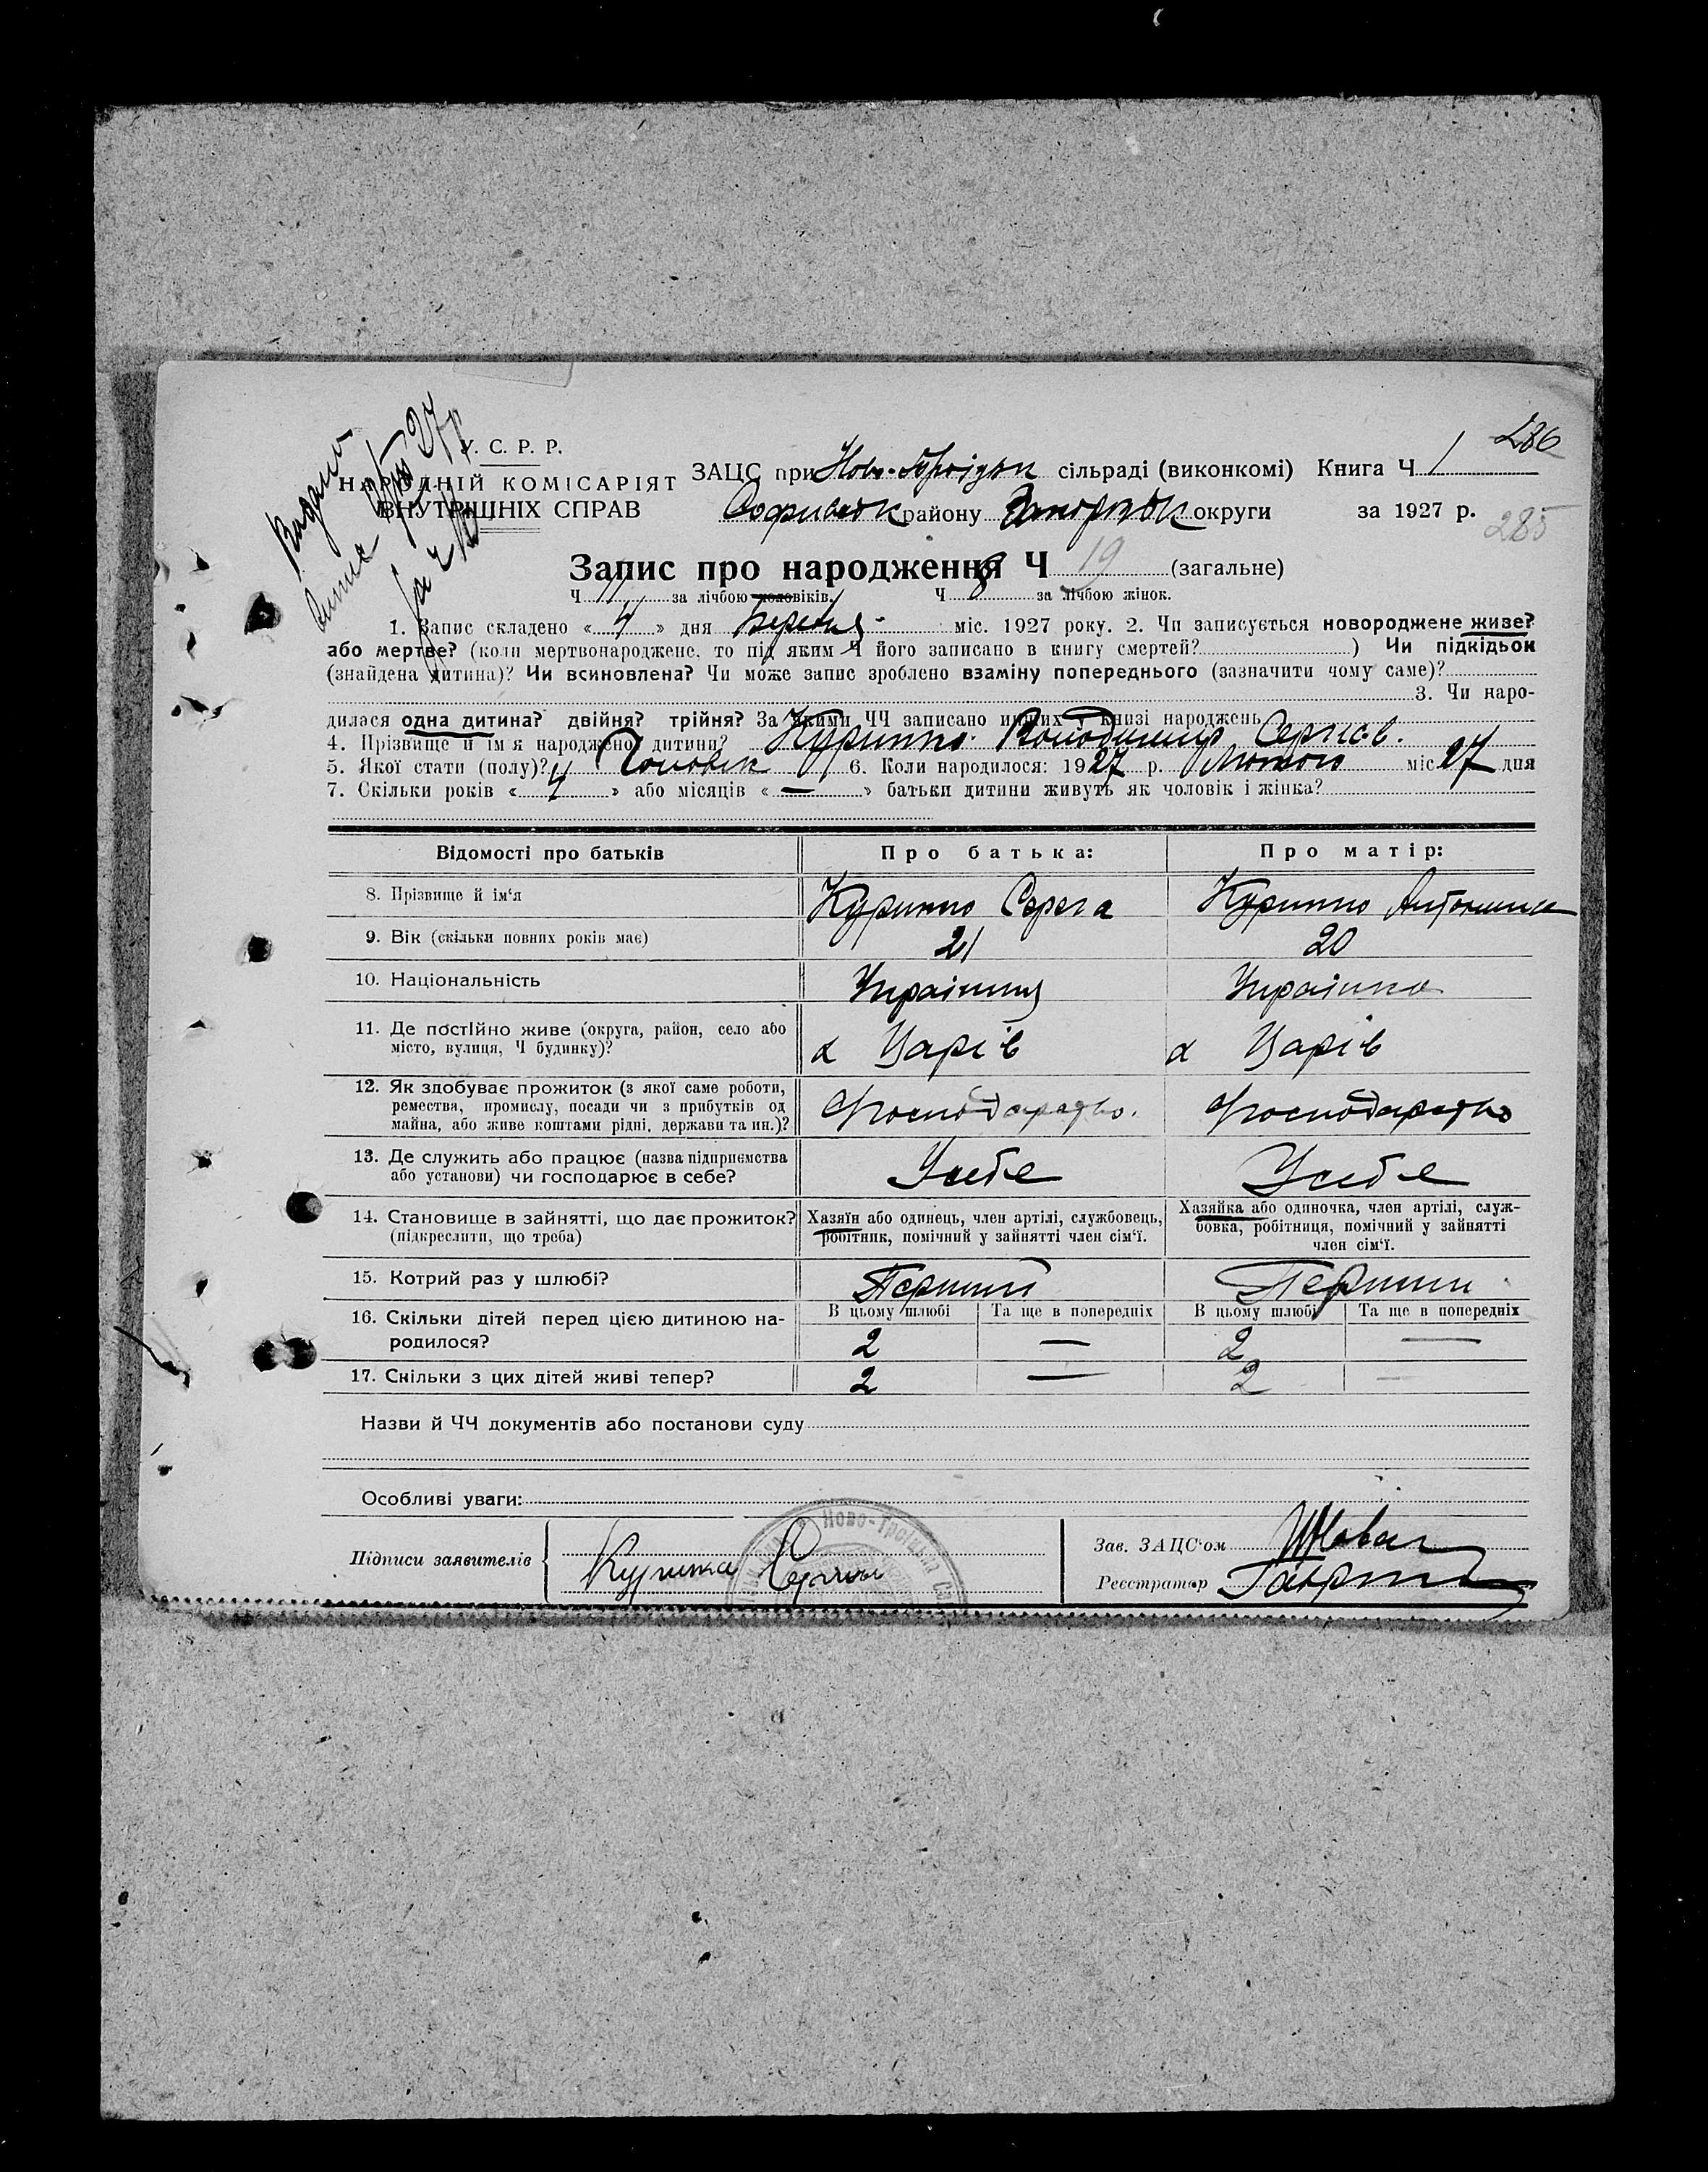 286
У. С. Р. Р.
НАРОДНІЙ КОМІСАРІЯТ
ВНУТРІШНІХ СПРАВ
Видано
ЗАЦС при Ново-Троідьк сільраді (виконкомі) Книга Ч 1
Софиевск району округи за 1927 р.
285
Запис про народження Ч 19 (загальне)
Ч 11 за лічбою чоловіків. Ч 8 за лічбою жінок.
1. Запис складено « 4 » дня Березня міс. 1927 року. 2. Чи записується новороджене живе?
або мертве? (коли мертвонароджене, то під яким Ч його записано в книгу смертей? ) Чи підкідьок
(знайдена дитина)? Чи всиновлена? Чи може запис зроблено взаміну попереднього (зазначити чому саме)?
3. Чи наро-
дилася одна дитина? двійня? трійня? За якими ЧЧ записано инших у книзі народжень
4. Прізвище й ім'я народженої дитини? Куринно Володимир Сергіев.
5. Якої стати (полу)? Чоловік 6. Коли народилося: 1927 р. Лютого міс 27 дня
7. Скільки років « 4 » або місяців « — » батьки дитини живуть як чоловік і жінка?
Відомості про батьків Про батька: Про матір:
8. Прізвище й ім'я Куринно Серега Куринно Антонина
9. Вік (скільки повних років має) 21 20
10. Національність Украінць Украінка
11. Де постійно живе (округа, район, село або
місто, вулиця, Ч будинку)? х Царів х Царів
12. Як здобуває прожиток (з якої саме роботи,
ремества, промислу, посади чи з прибутків од
майна, або живе коштами рідні, держави та ин.)? Господарство. Господарство
13. Де служить або працює (назва підприємства
або установи) чи господарює в себе? Усебе Усебе
14. Становище в зайнятті, що дає прожиток?
(підкреслити, що треба)
Хазяїн або одинець, член артілі, службовець,
робітник, помічний у зайнятті член сім'ї.
Хазяйка або одиночка, член артілі, служ-
бовка, робітниця, помічний у зайнятті
член сім'ї.
15. Котрий раз у шлюбі? Перший Перший
В цьому шлюбі Та ще в попередніх В цьому шлюбі Та ще в попередніх
16. Скільки дітей перед цією дитиною на-
родилося? 2 — 2 —
17. Скільки з цих дітей живі тепер? 2 — 2 —
Назви й ЧЧ документів або постанови суду
Особливі уваги:
Ново-Троіцька
Підписи заявителів Куринна
Зав. ЗАЦС'ом
Реєстратор